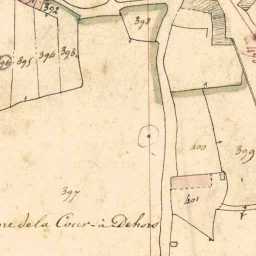 392
398
396 395 394 393
400
399
397
401
me de la Cour-à Dehors